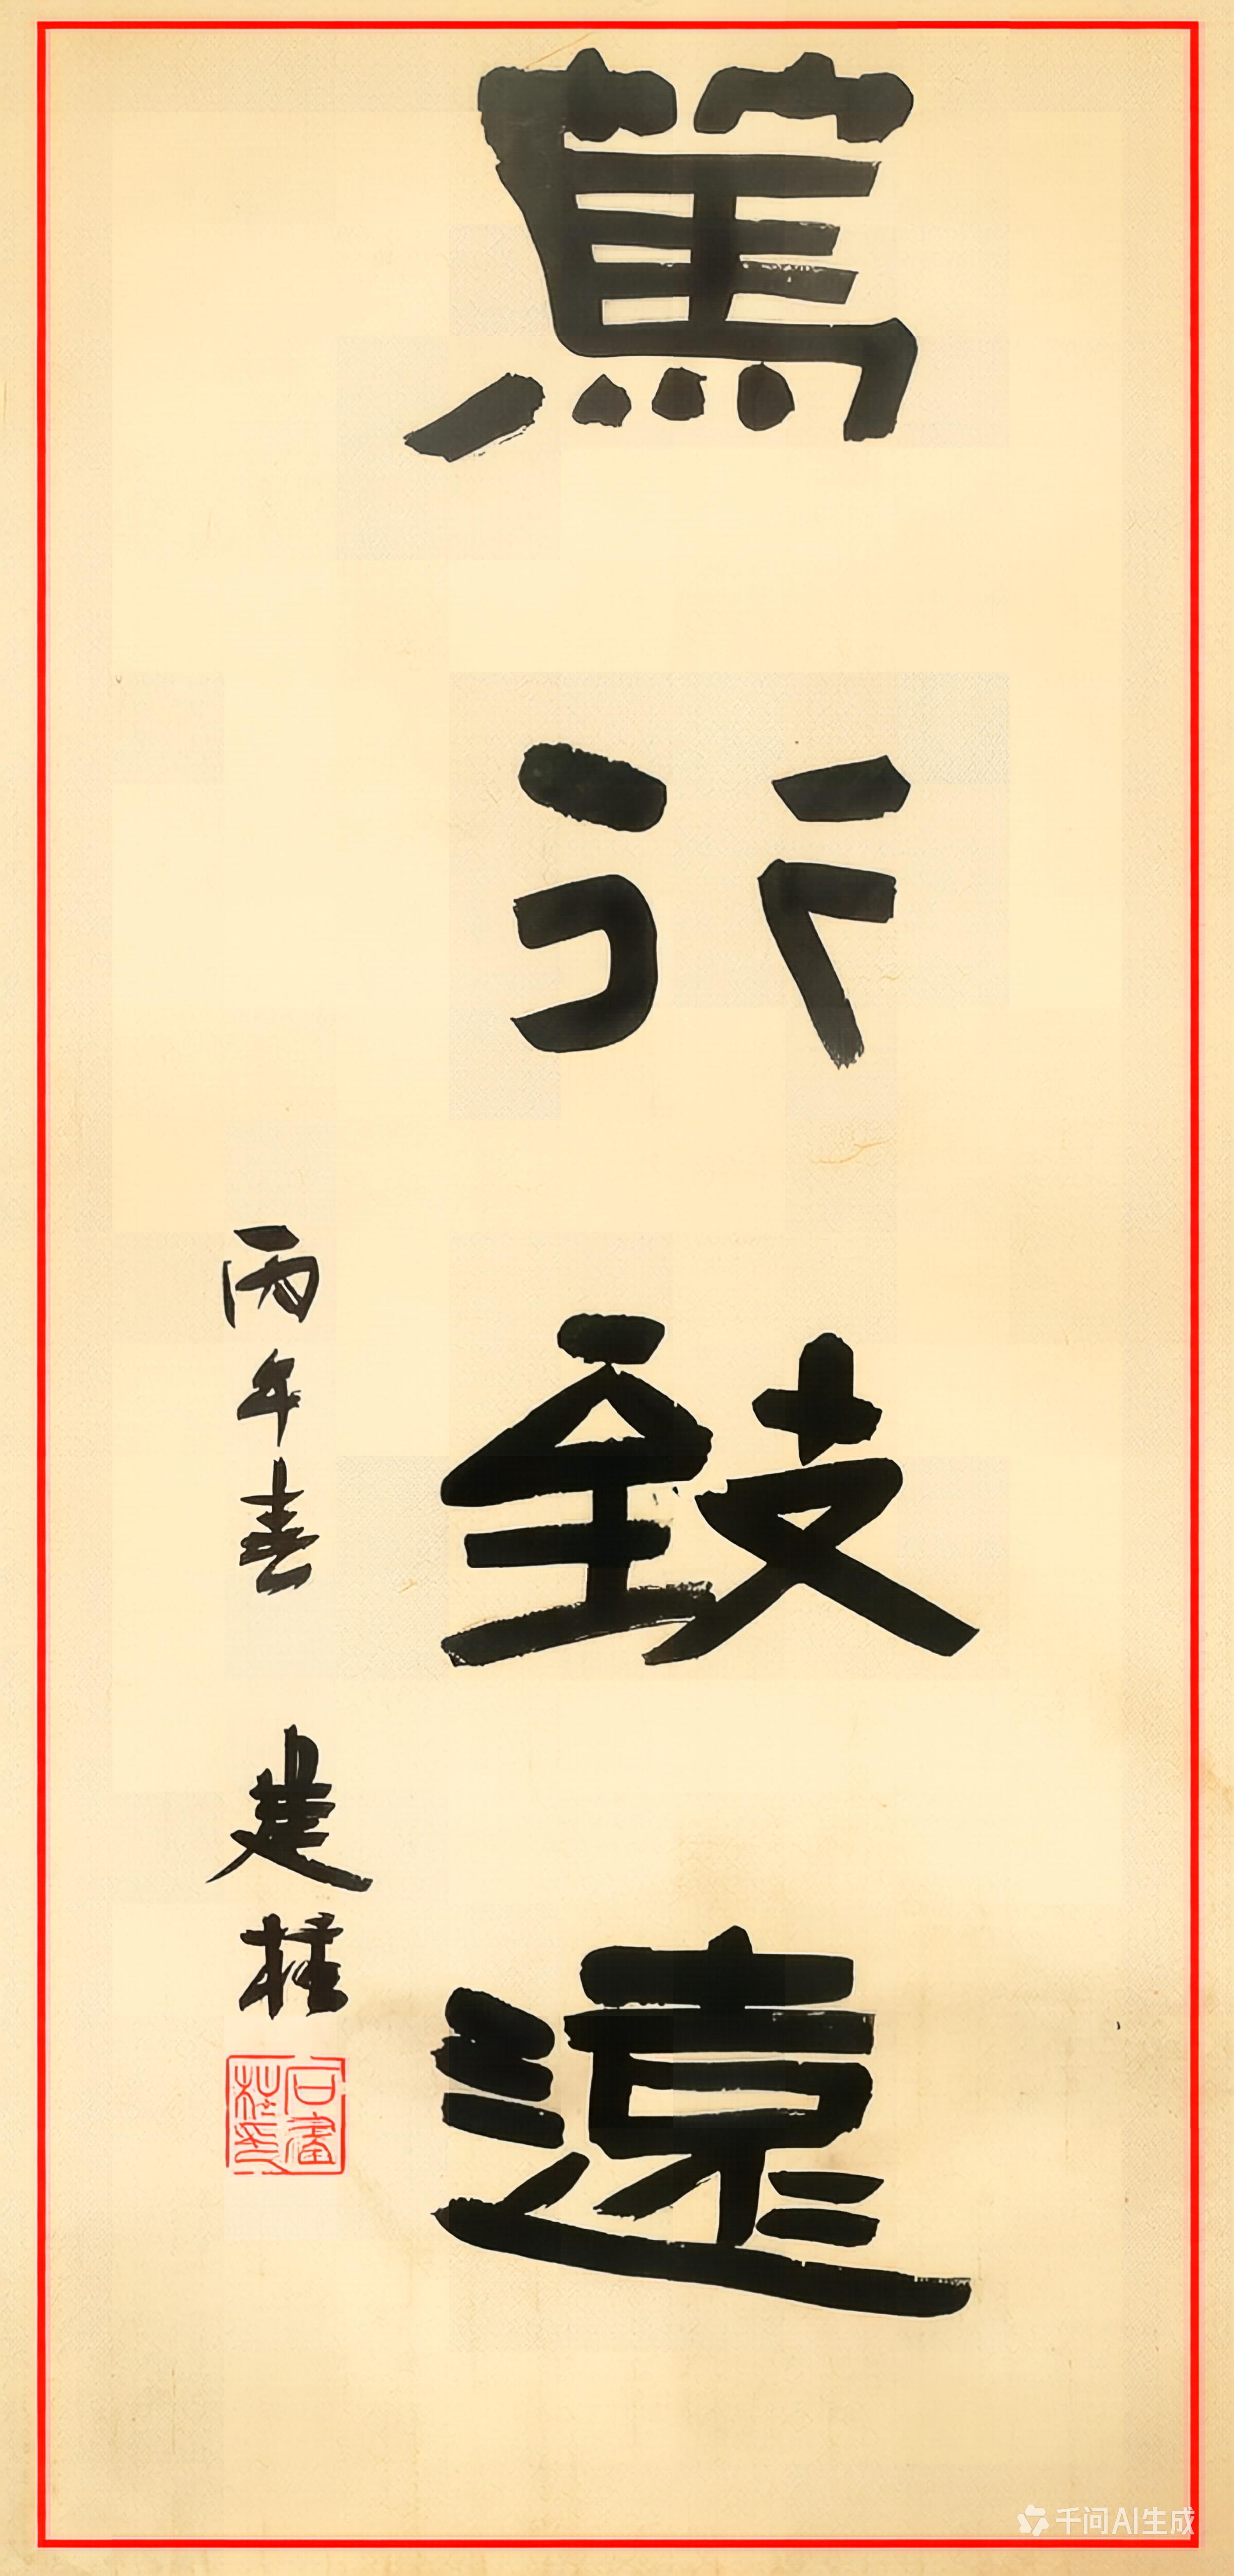 篤行致遠
丙午春 建桂
千问AI生成